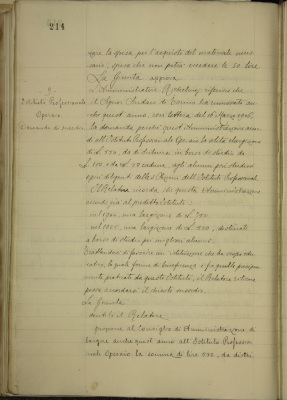 214
spese la spesa per l'acquisto del materiale neces-
sario, spesa che non potrà eccedere le 50 lire
La Giunta approva
8
Istituto Professionale
Operaio
Domanda di sussidio
L'Amministratore riferisce che
il Signor Sindaco di Torino ha
quest'anno, con lettera del Marzo 1906,
la domanda perché quest'Amministrazione
all'Istituto Professionale Operaio la solita elargizione
di L. 500, da distribuirsi in borse di studio da
L. 100 e da L. 50 cadune, agli alunni più studiosi
e più diligenti delle Officine dell'Istituto Professionale
Il Relatore ricorda che questa Amministrazione
al predetto Istituto:
nel 1904, una largizione di L. 300
nel 1905, una largizione di L. 500, destinate
a borse di studio pei migliori alunni.
Trattandosi di favorire un'Istituzione che ha scopo edu-
cativo, la quale forma di beneficenza
questo Istituto, il Relatore ritiene
possa accordarsi il chiesto sussidio.
La Giunta
sentito il Relatore
propone al Consiglio di Amministrazione di
largire anche quest'anno all'Istituto Professio-
nale Operaio la somma di lire 500, da distri-